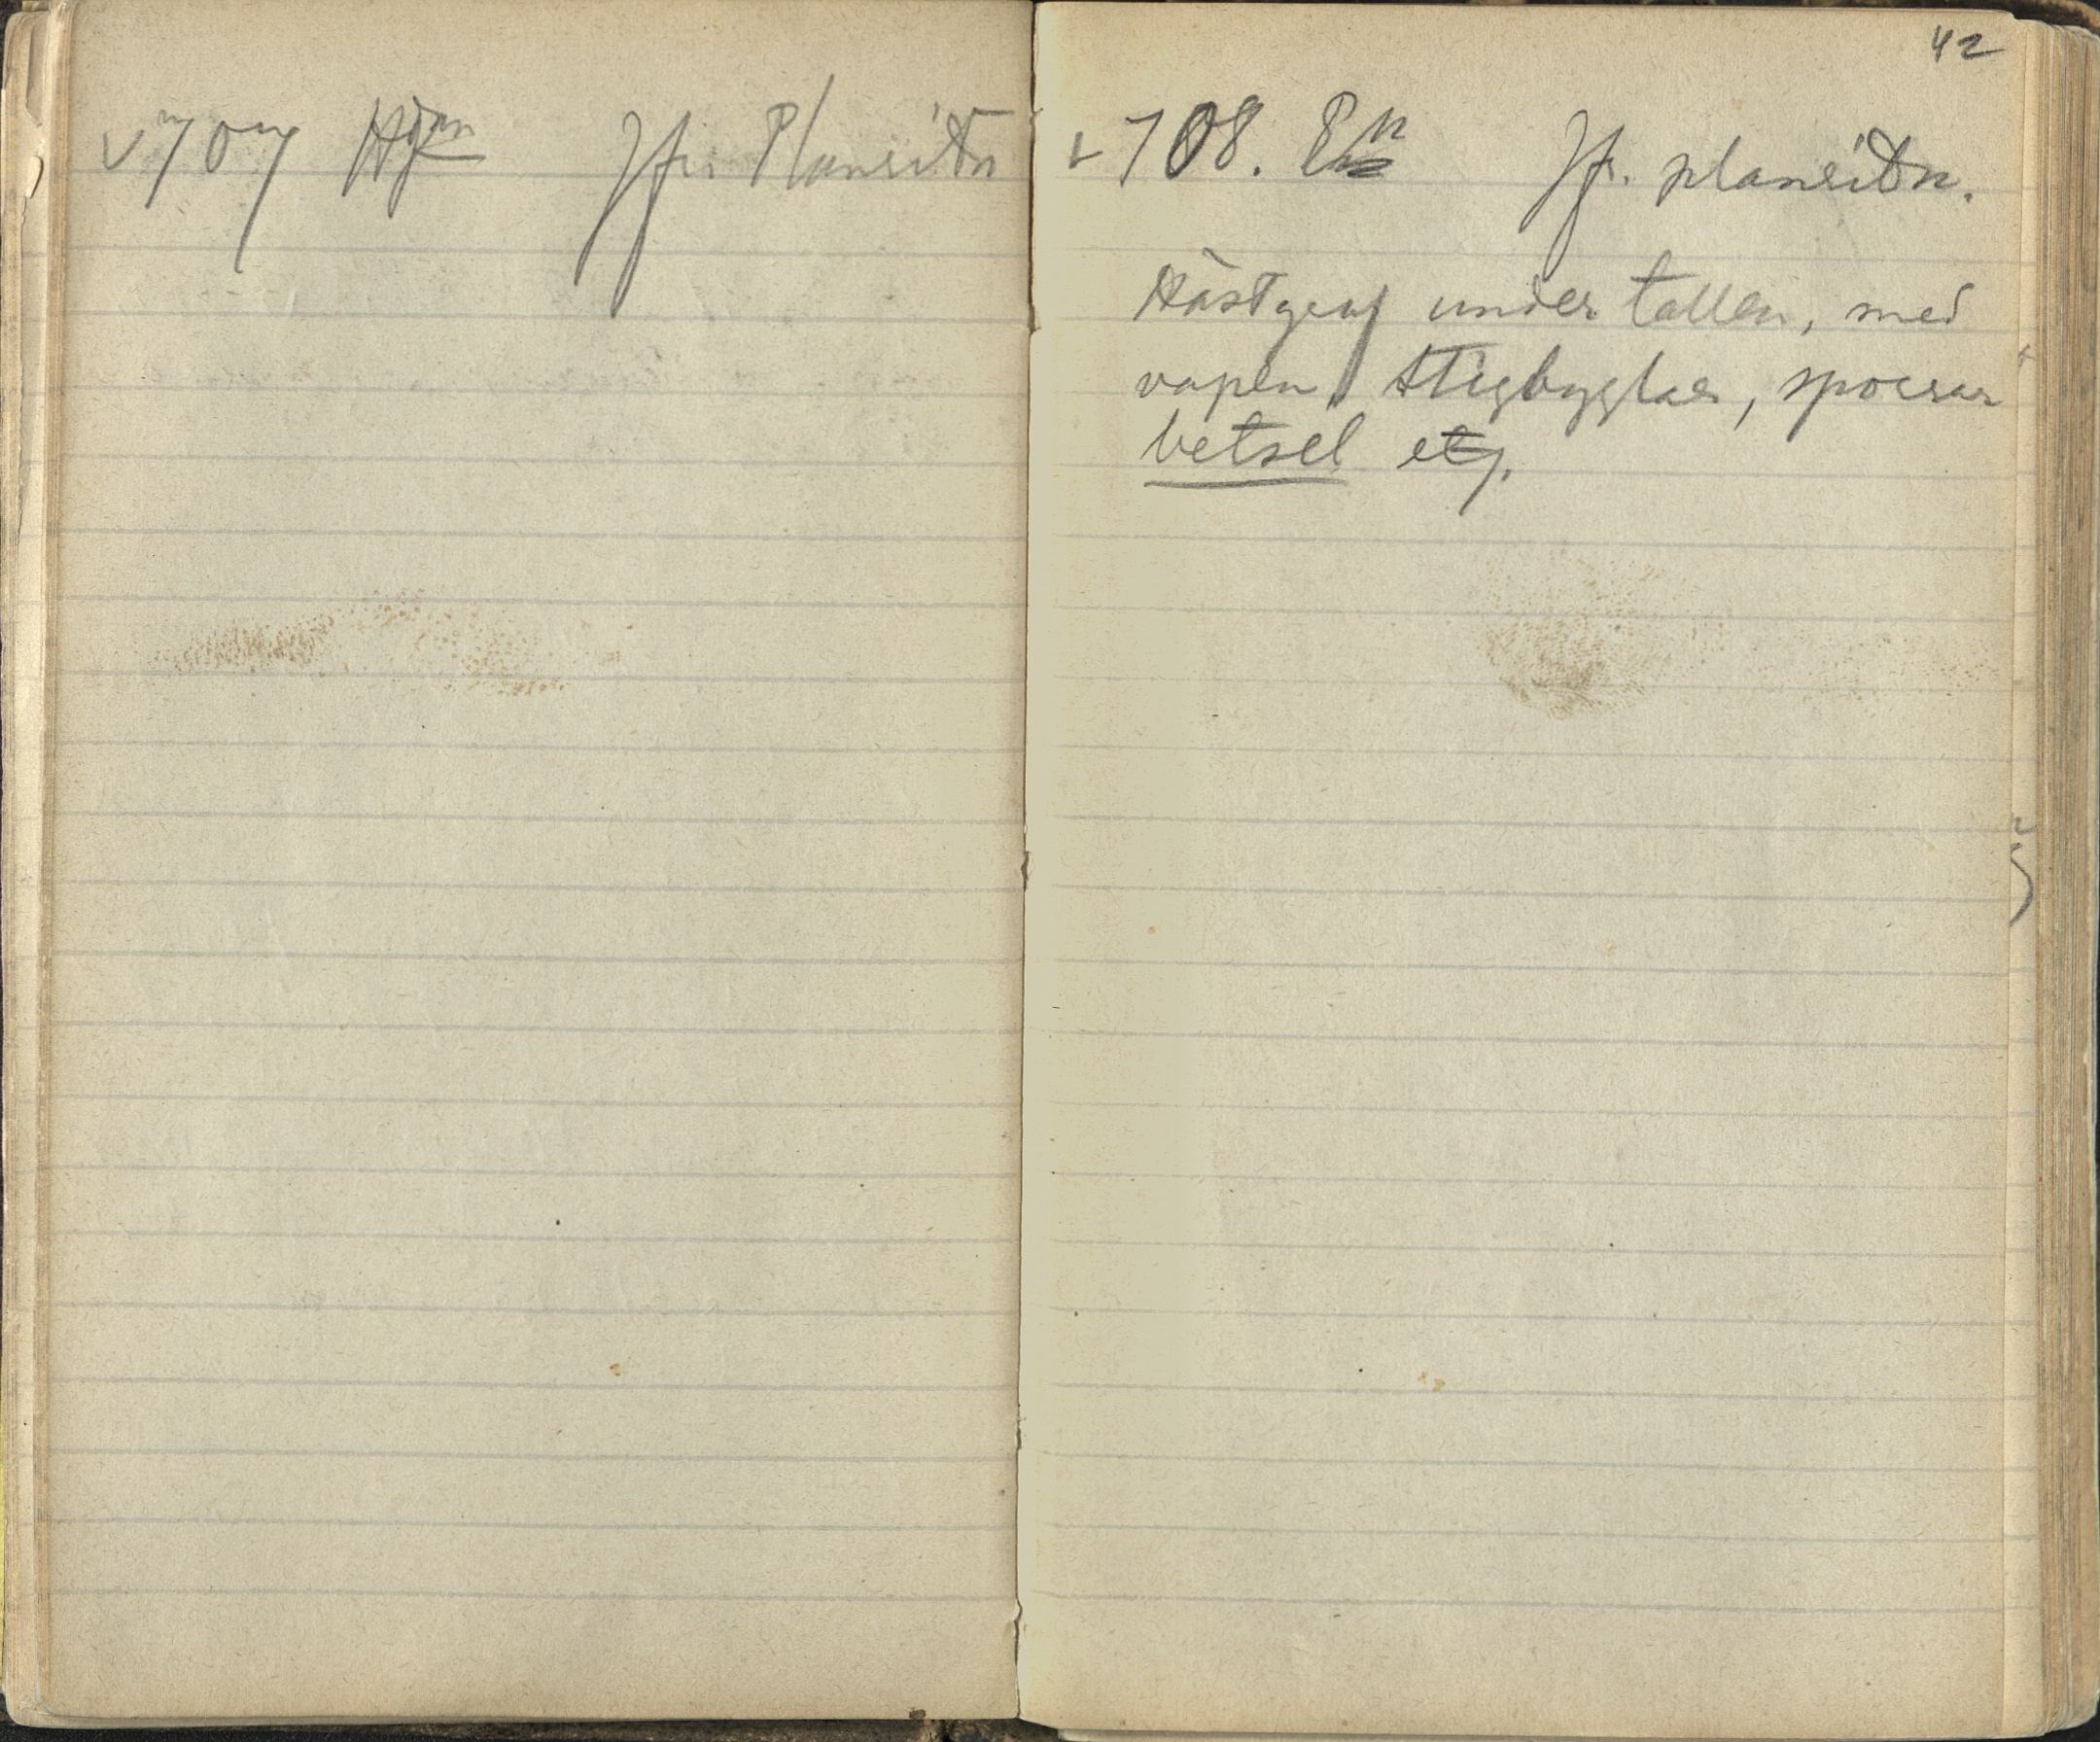 v 707 Hög Jfr Planritn
42
v 708. Jfr. planritn.
Hästgraf under tallen, med
vapen, stigbyglar, sporrar
betsel etc.